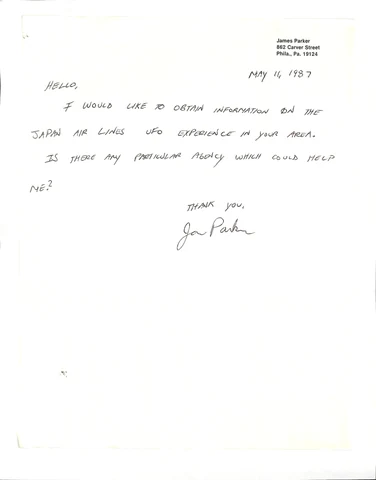 James Parker
862 Carver Street
Phila., Pa. 19124
MAY 11, 1987
HELLO,
I WOULD LIKE TO OBTAIN INFORMATION ON THE
JAPAN AIR LINES UFO EXPERIENCE IN YOUR AREA.
IS THERE ANY PARTICULAR AGENCY WHICH COULD HELP
ME?
THANK YOU,
Jam Parker